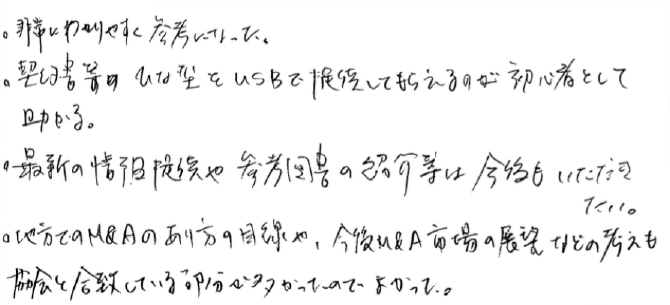 。非常にわかりやすく参考になった。
。契約書等のひな型をUSBで提供してもらえるのが初心者として
助かる。
。最新の情報提供や参考図書の紹介等は今後もいただき
たい。
。地方でのM&Aのあり方の目線や、今後M&A市場の展望などの考えも
協会と合致している部分が多かったのでよかった。